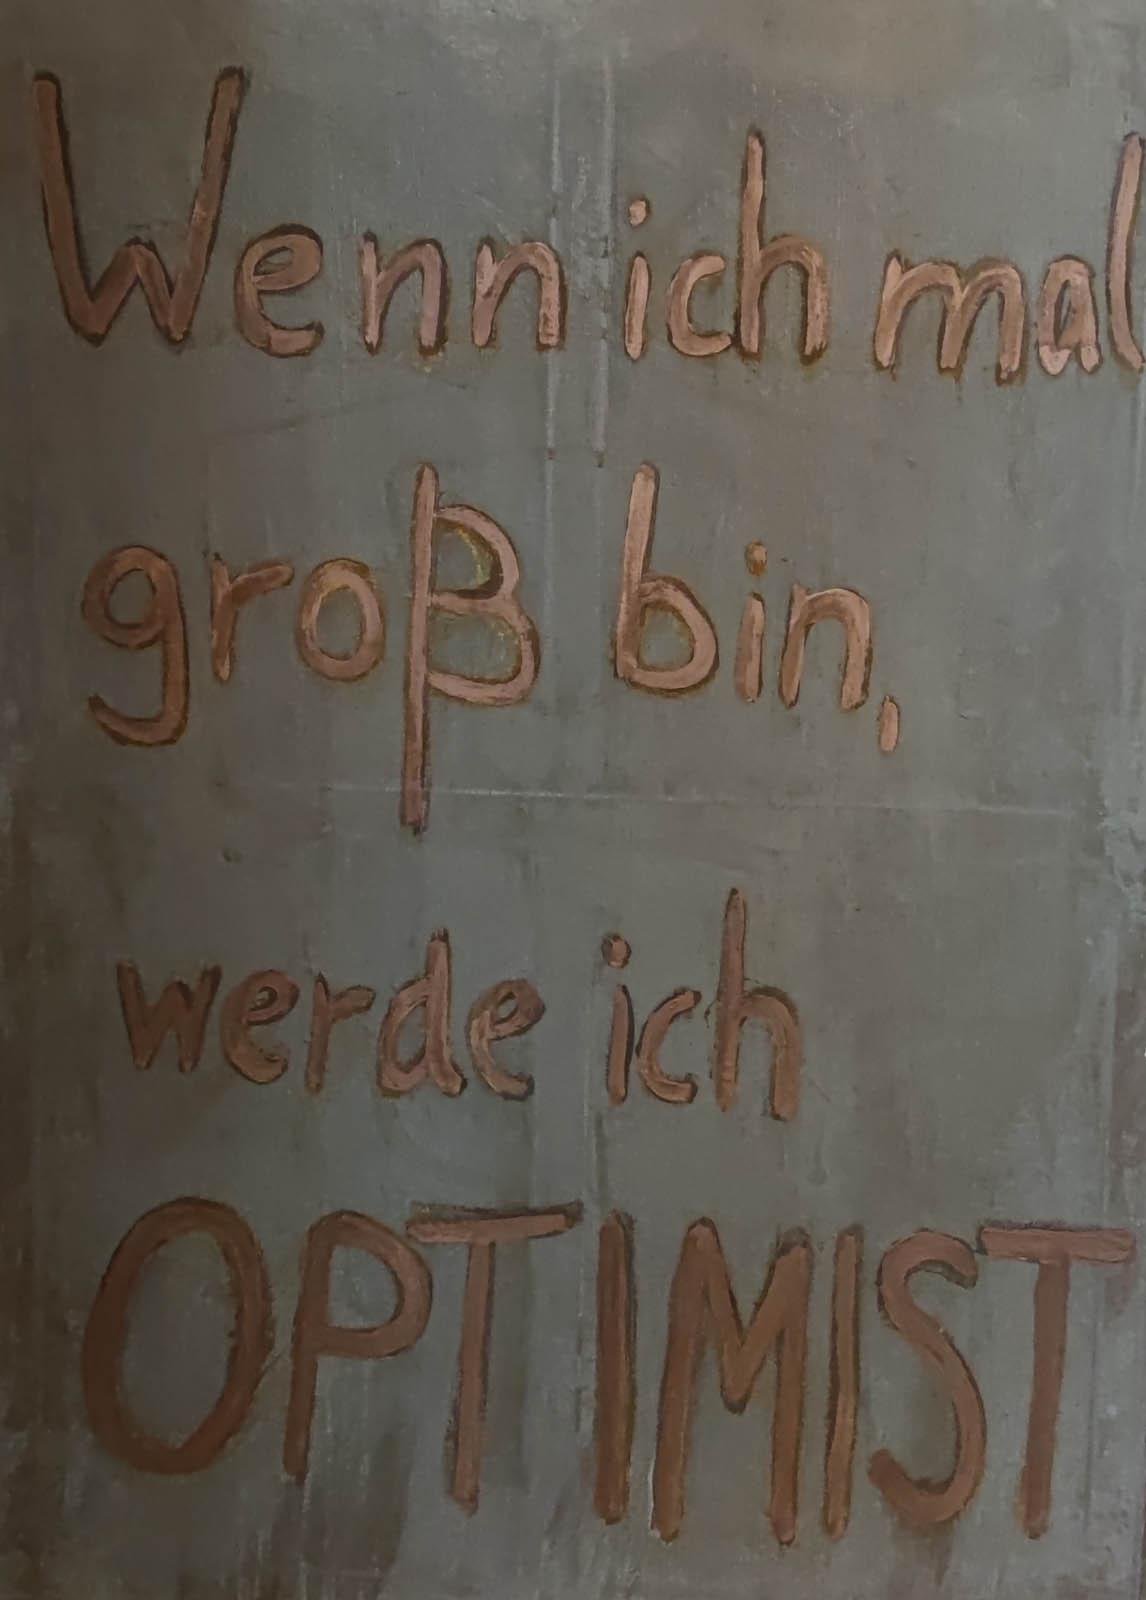 Wenn ich mal
groß bin,
werde ich
OPTIMIST